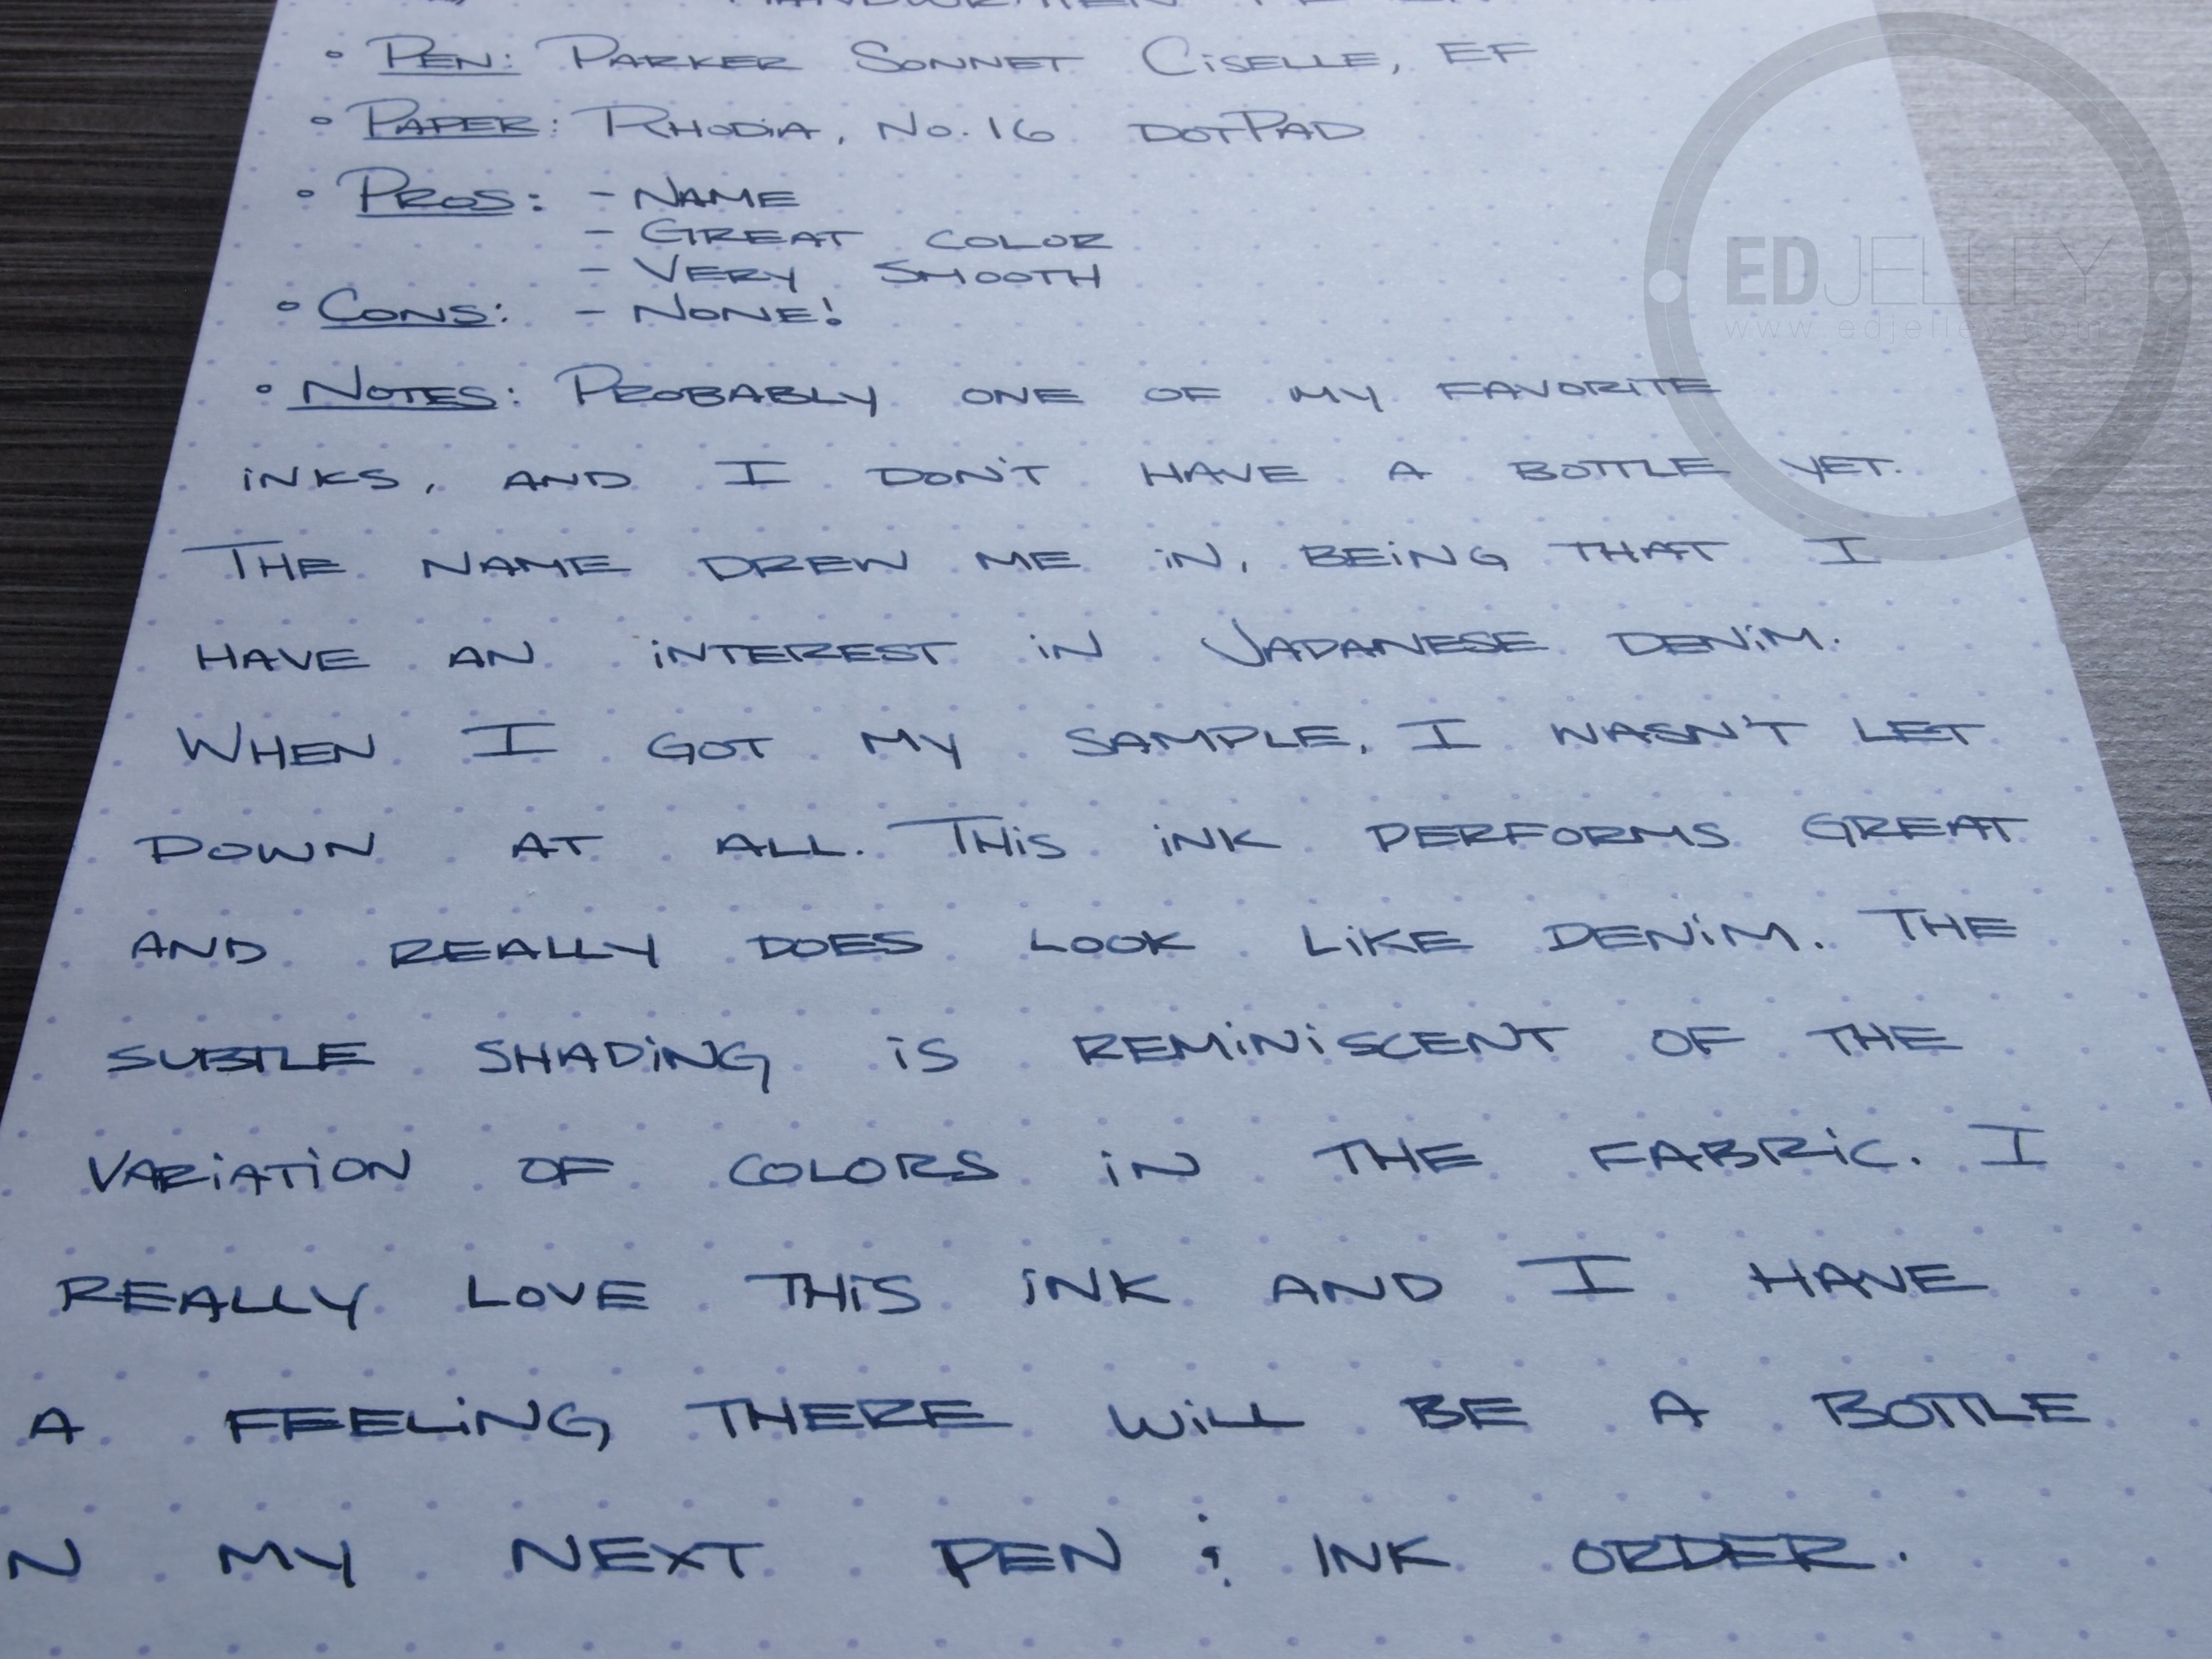 HANDWRITTEN
• PEN: PARKER SONNET CISELLE, EF
• PAPER: RHODIA, No. 16 DOTPAD
• PROS: - NAME
- GREAT COLOR
- VERY SMOOTH
• CONS: - NONE!
EDJELLEY
www.edjelley.com
• NOTES: PROBABLY ONE OF MY FAVORITE
INKS, AND I DON'T HAVE A BOTTLE YET.
THE NAME DREW ME IN, BEING THAT I
HAVE AN INTEREST IN JAPANESE DENIM.
WHEN I GOT MY SAMPLE, I WASN'T LET
DOWN AT ALL. THIS INK PERFORMS GREAT
AND REALLY DOES LOOK LIKE DENIM. THE
SUBTLE SHADING IS REMINISCENT OF THE
VARIATION OF COLORS IN THE FABRIC. I
REALLY LOVE THIS INK AND I HAVE
A FEELING THERE WILL BE A BOTTLE
N MY NEXT PEN & INK ORDER.